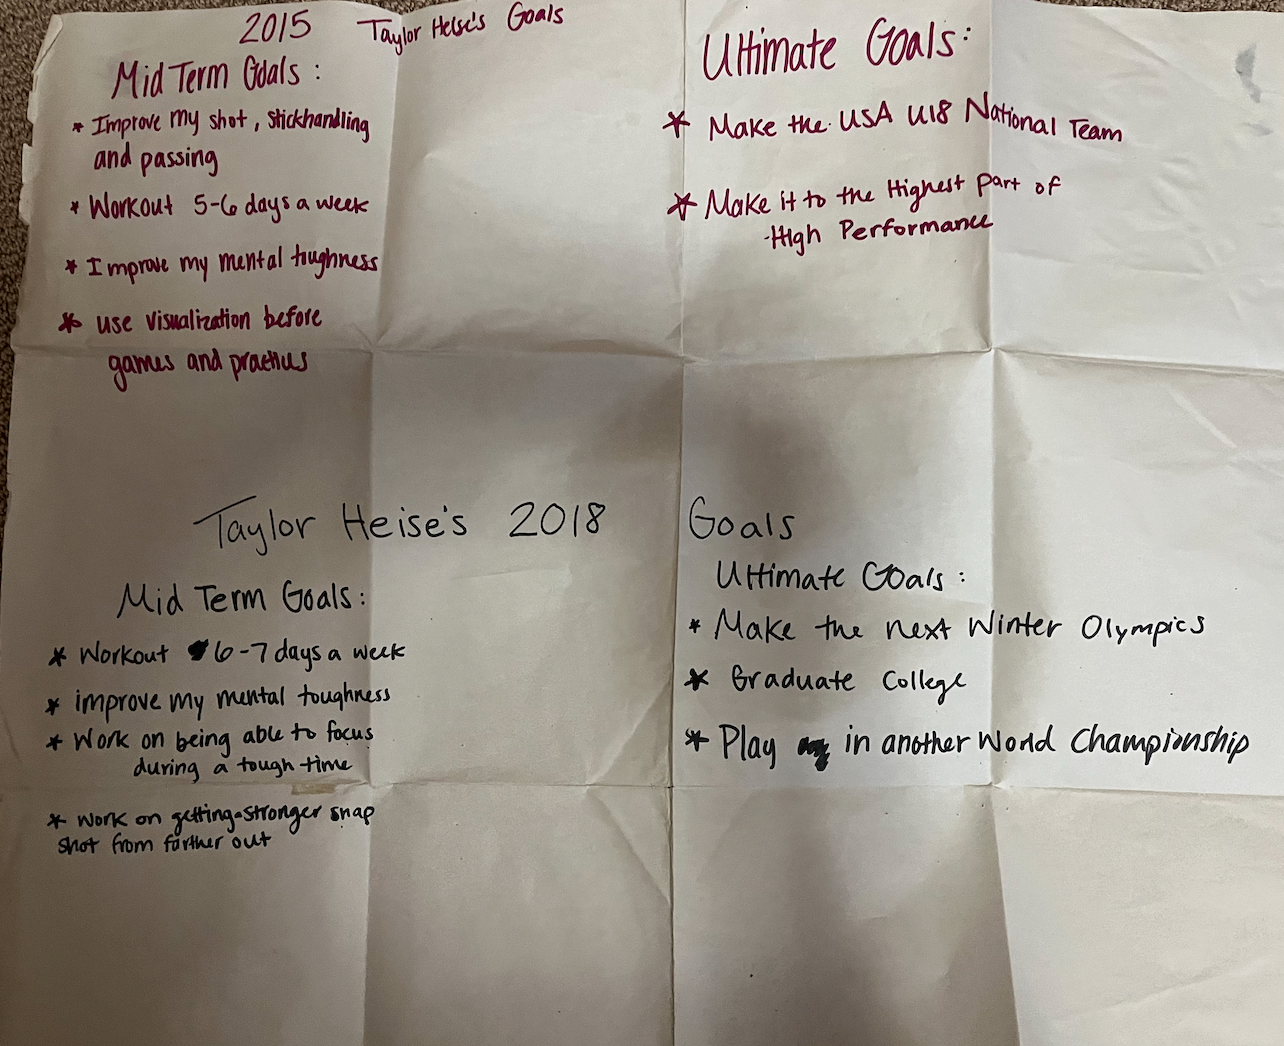 2015 Taylor Heise's Goals
Mid Term Goals :
* Improve my shot , stickhandling
and passing
* Workout 5-6 days a week
* Improve my mental toughness
* use visualization before
games and practices
Ultimate Goals :
* Make the USA U18 National Team
* Make it to the Highest part of
High Performance
Taylor Heise's 2018 Goals
Mid Term Goals :
* Workout 6-7 days a week
* improve my mental toughness
* Work on being able to focus
during a tough time
* Work on getting stronger snap
shot from farther out
Ultimate Goals :
* Make the next Winter Olympics
* Graduate College
* Play in another World Championship